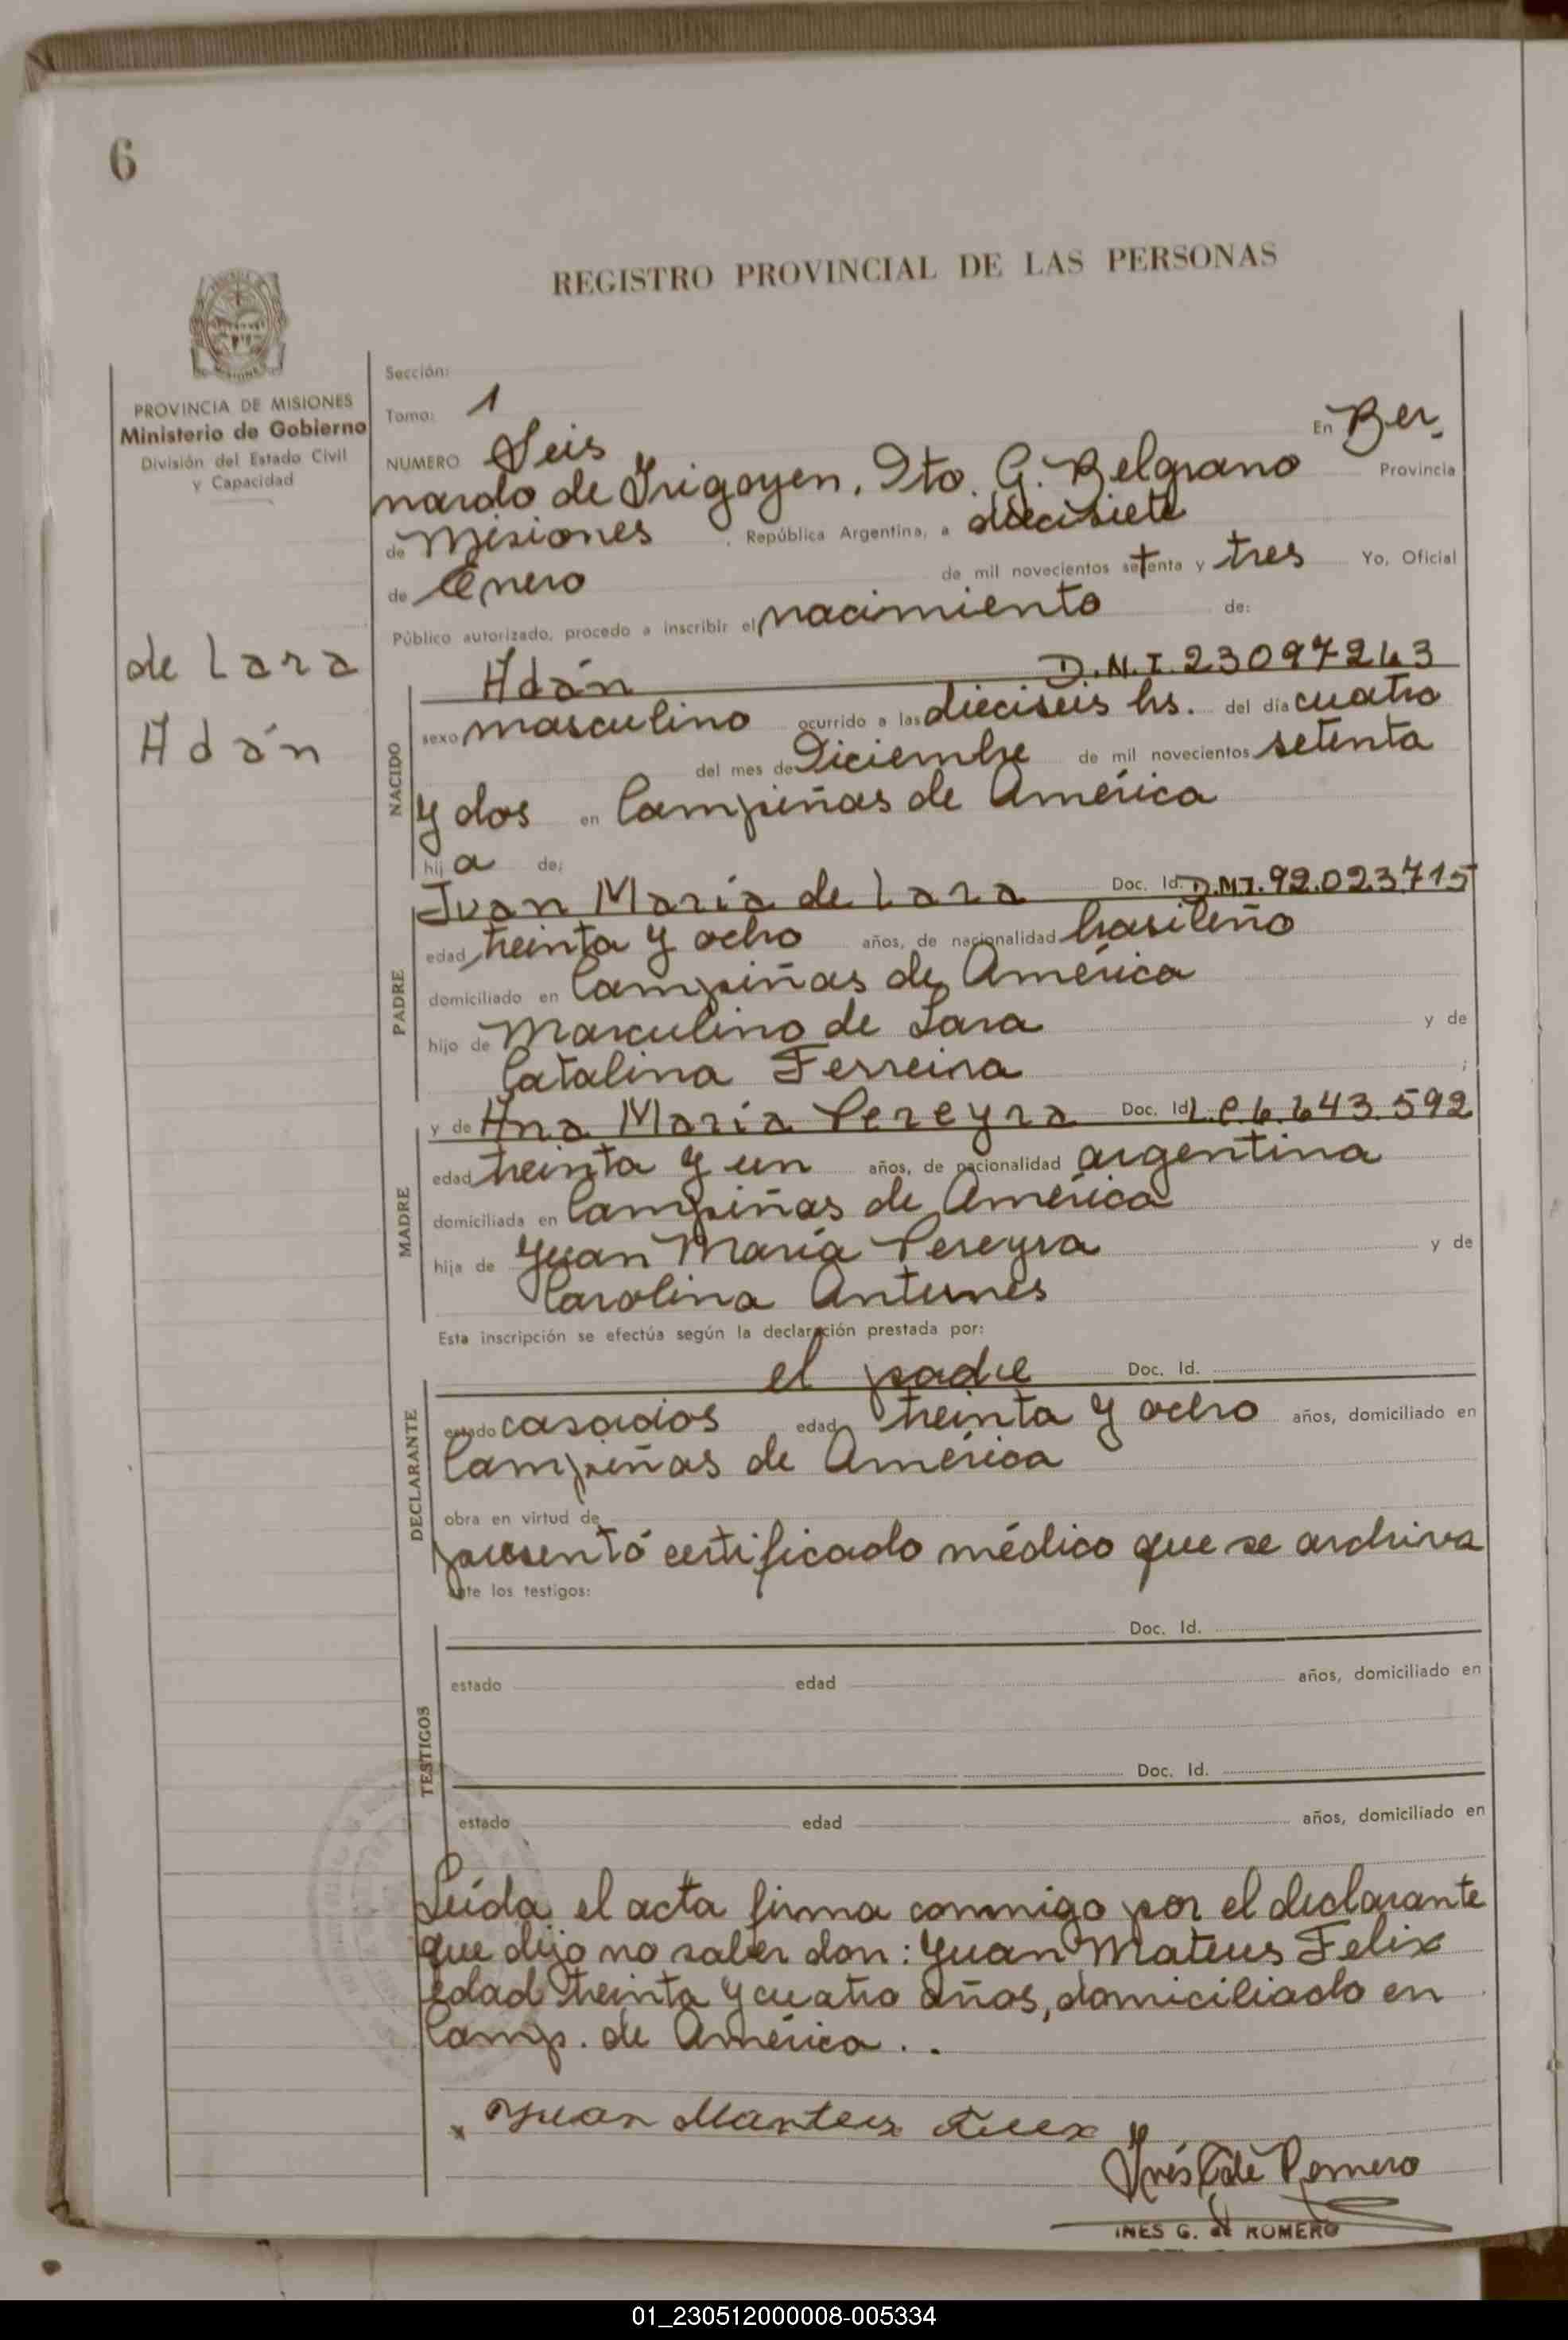 6
REGISTRO PROVINCIAL DE LAS PERSONAS
PROVINCIA DE MISIONES
Ministerio de Gobierno
División del Estado Civil
y Capacidad
de Lara
Adán
Sección:
Tomo: 1
NUMERO Seis En Ber
nardo de Irigoyen, Dto. G. Belgrano Provincia
de Misiones , República Argentina, a diecisiete
de Enero de mil novecientos setenta y tres Yo, Oficial
Público autorizado, procedo a inscribir el nacimiento de:
NACIDO
Adán D.N.I. 23097263
sexo masculino ocurrido a las dieciseis hs. del día cuatro
del mes de Diciembre de mil novecientos setenta
y dos en Campiñas de América
hij a de:
PADRE
Juan María de Lara Doc. Id. D.N.I. 92.023.715
edad treinta y ocho años, de nacionalidad brasileño
domiciliado en Campiñas de América
hijo de Masculino de Lara y de
Catalina Ferreira ;
MADRE
y de Ana María Pereyra Doc. Id L.C 6.643.592
edad treinta y un años, de nacionalidad argentina
domiciliada en Campiñas de América
hija de Juan María Pereyra y de
Carolina Antunes
Esta inscripción se efectúa según la declaración prestada por:
DECLARANTE
el padre Doc. Id.
estado casados edad treinta y ocho años, domiciliado en
Campiñas de América
obra en virtud de
presentó certificado médico que se archiva
ante los testigos:
TESTIGOS
Doc. Id.
estado edad años, domiciliado en
Doc. Id.
estado edad años, domiciliado en
Leída el acta firma conmigo por el declarante
que dijo no saber don: Juan Mateus Felix
edad treinta y cuatro años, domiciliado en
Camp. de América . .
Juan
Inés G de Romero
INES G. de ROMERO
01_230512000008-005334